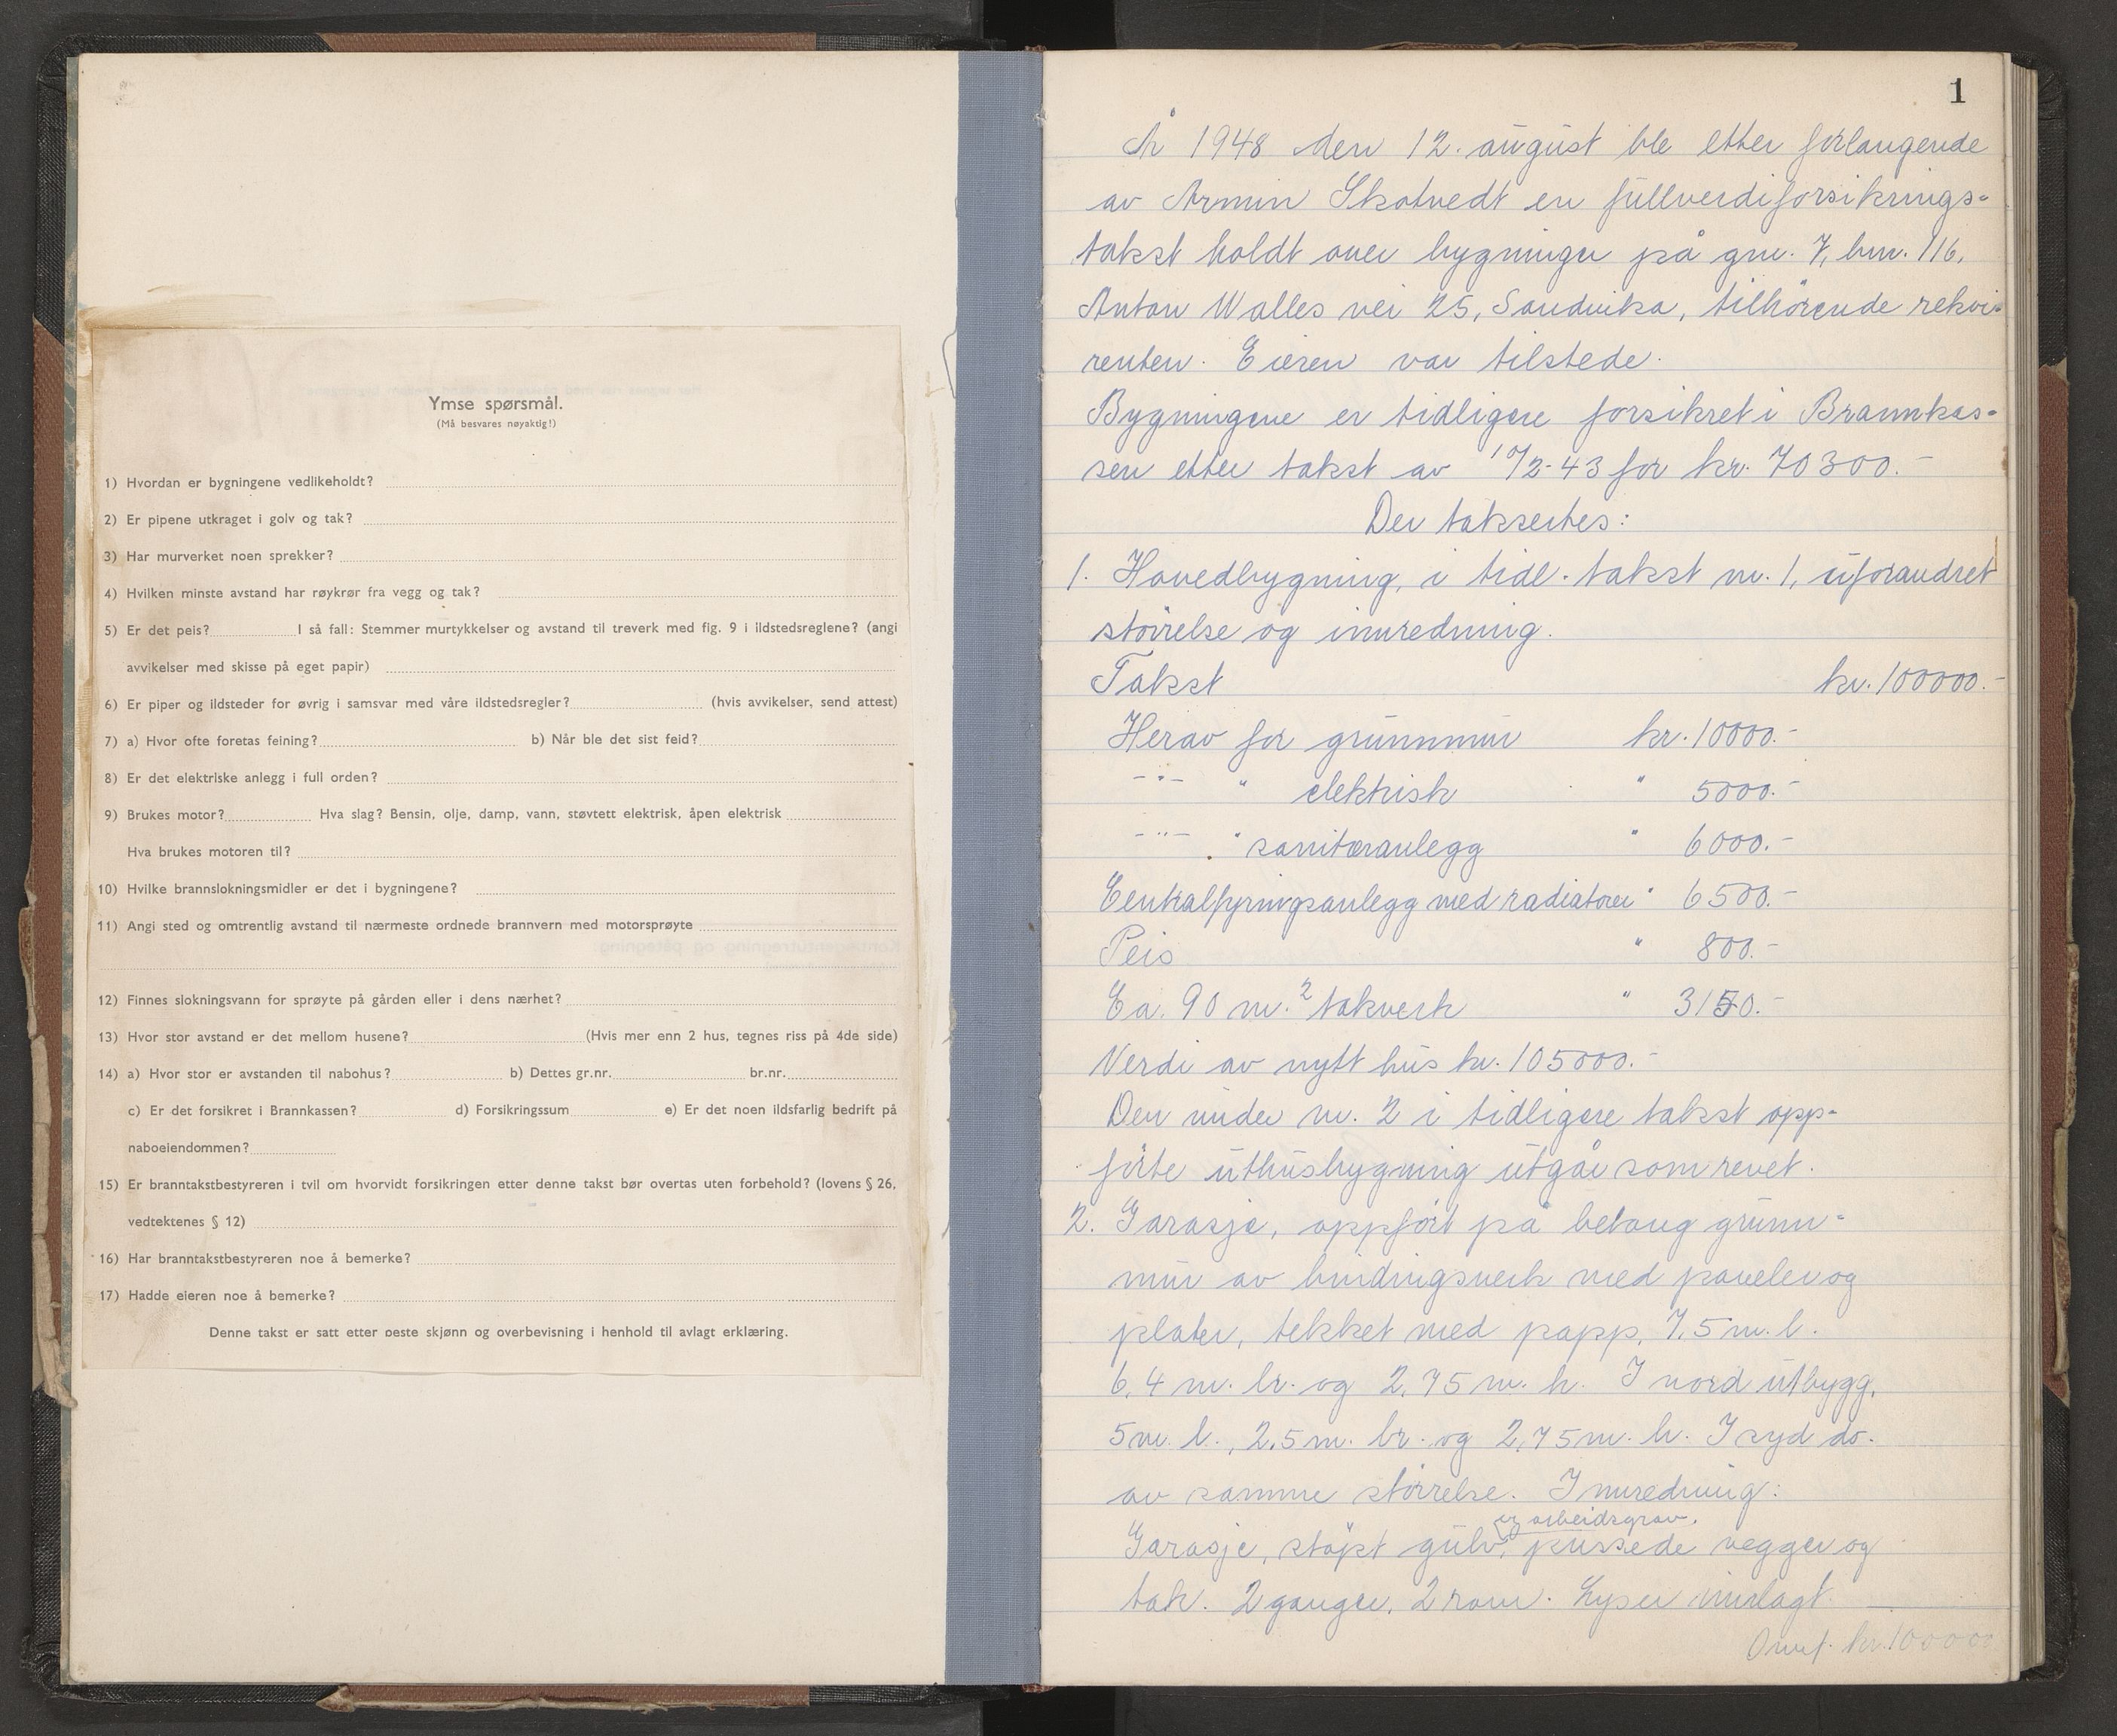 Ymse spørsmål.
(Må besvares nøyaktig!)
1) Hvordan er bygningene vedlikeholdt?
2) Er pipene utkraget i golv og tak?
3) Har murverket noen sprekker?
4) Hvilken minste avstand har røykrør fra vegg og tak?
5) Er det peis? I så fall: Stemmer murtykkelser og avstand til treverk med fig. 9 i ildstedsreglene? (angi
avvikelser med skisse på eget papir)
6) Er piper og ildsteder for øvrig i samsvar med våre ildstedsregler? (hvis avvikelser, send attest)
7) a) Hvor ofte foretas feining? b) Når ble det sist feid?
8) Er det elektriske anlegg i full orden?
9) Brukes motor? Hva slag? Bensin, olje, damp, vann, støvtett elektrisk, åpen elektrisk
Hva brukes motoren til?
10) Hvilke brannslokningsmidler er det i bygningene?
11) Angi sted og omtrentlig avstand til nærmeste ordnede brannvern med motorsprøyte
12) Finnes slokningsvann for sprøyte på gården eller i dens nærhet?
13) Hvor stor avstand er det mellom husene? (Hvis mer enn 2 hus, tegnes riss på 4de side)
14) a) Hvor stor er avstanden til nabohus? b) Dettes gr.nr. br.nr.
c) Er det forsikret i Brannkassen? d) Forsikringssum e) Er det noen ildsfarlig bedrift på
naboeiendommen?
15) Er branntakstbestyreren i tvil om hvorvidt forsikringen etter denne takst bør overtas uten forbehold? (lovens § 26,
vedtektenes § 12)
16) Har branntakstbestyreren noe å bemerke?
17) Hadde eieren noe å bemerke?
Denne takst er satt etter beste skjønn og overbevisning i henhold til avlagt erklæring.
1
År 1948 den 12. august ble etter forlangende
av Armin Skotvedt en fullverdiforsikrings-
takst holdt over bygninger på gnr. 7, bnr. 116,
Anton Walles vei 25, Sandvika, tilhörende rekvi-
renten. Eieren var tilstede.
Bygningene er tidligere forsikret i Brannkas-
sen etter takst av 10/2-43 for kr. 70300.-
Der takseertes:
1. Hovedbygning, i tidl. takst nr. 1, uforandret
störrelse og innredning.
Takst kr. 100000.-
Herav for grunnmur kr. 10000.-
-"- " elektrisk " 5000.-
-"- " sanitæranlegg " 6000.-
Centralfyringsanlegg med radiatorer " 6500.-
Peis " 800.-
Ca. 90 m.² takverk " 3150.-
Verdi av nytt hus kr. 105000.-
Den under nr. 2 i tidligere takst opp-
förte uthusbygning utgår som revet.
2. Garasje, oppfört på betong grunn-
mur av bindingsverk med paneler og
plater, tekket med papp, 7,5 m. l.
6,4 m. br. og 2,75 m. h. I nord utbygg,
5 m. l., 2,5 m. br. og 2,75 m. h. I syd do.
av samme störrelse. Innredning:
m/ arbeidsgrav,
Garasje, stöpt gulv, pussede vegger og
tak. 2 ganger, 2 rom. Lyser innlagt.
Overf. kr. 100000